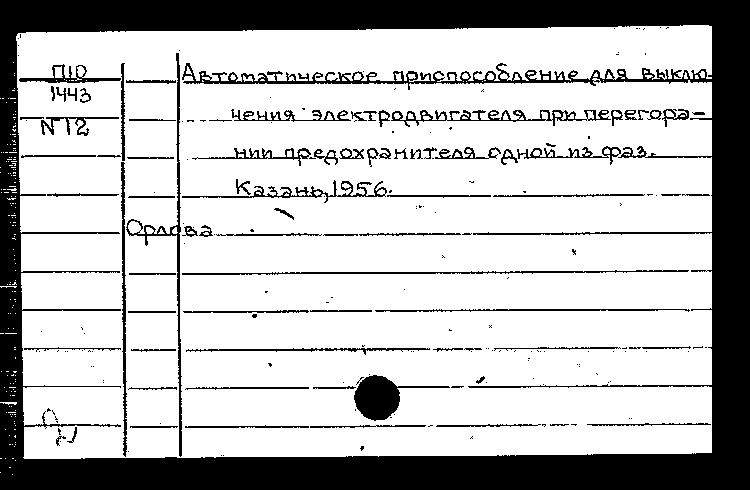 П10
1443
N12
Автоматическое приспособление для выклю-
чения электродвигателя при перегора-
нии предохранителя одной из фаз.
Казань, 1956.
Орлова